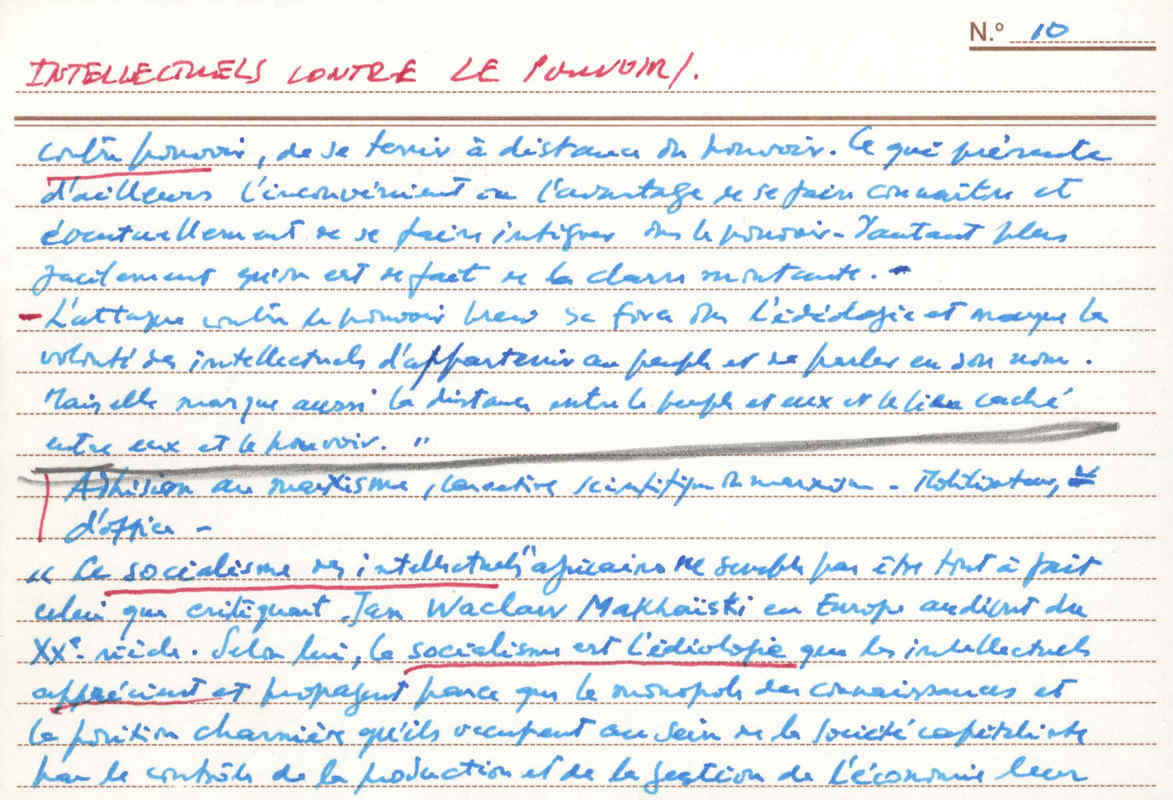 N.º 10
INTELLECTUELS CONTRE LE POUVOIR/.
contre pouvoir, de se tenir à distance du pouvoir. Ce qui présente
d'ailleurs l'inconvénient ou l'avantage de se faire connaître et
éventuellement de se faire intégrer ds le pouvoir - D'autant plus
facilement qu'on est de fait de la classe montante. -
- L'attaque contre le pouvoir se fera ds l'idéologie et marque la
volonté des intellectuels d'appartenir au peuple et de parler en son nom.
Mais elle marque aussi la distance entre le peuple et eux et le lien caché
entre eux et le pouvoir. "
Adhésion au marxisme, scientifique du marxisme - Mobilisateur,
d'office -
« Le socialisme des intellectuels" africains ne semble pas être tout à fait
celui que critiquait Jan Waclaw Makhaïski en Europe au début du
XXe siècle. Selon lui, le socialisme est l'idéologie que les intellectuels
apprécient et propagent parce que le monopole des connaissances et
la position charnière qu'ils occupent au sein de la société capitaliste
par le contrôle de la production et de la gestion de l'économie leur